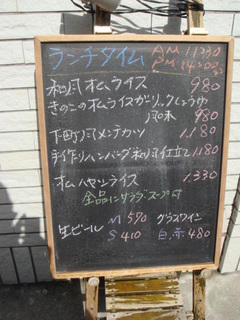 ランチタイム AM 11:30
PM 14:00
和風オムライス 980
きのこのオムライスガーリックしょうゆ
風味 980
下町風メンチカツ 1.180
手作りハンバーグ和風仕立て 1.180
オムハヤシライス 1.330
全品にサラダ・スープ付
生ビール M 570 グラスワイン
S 410 白.赤 480